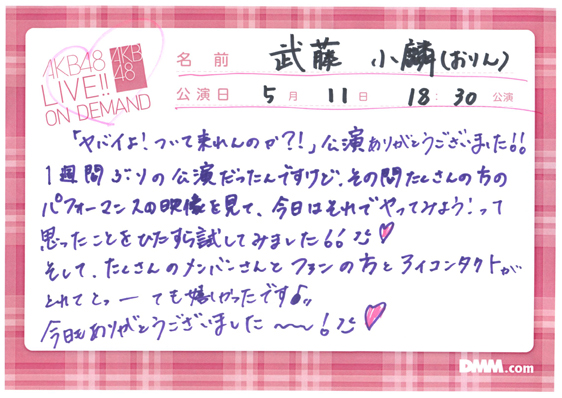 AKB48
LIVE!!
ON DEMAND
AKB
48
名前 武藤 小麟(おりん)
公演日 5月 11日 18:30 公演
「ヤバイよ!ついて来れんのか?!」公演ありがとうございました!!
1週間ぶりの公演だったんですけど、その間たくさんの方の
パフォーマンスの映像を見て、今日はそれでやってみよう!って
思ったことをひたすら試してみました!!
そして、たくさんのメンバーさんとファンの方とアイコンタクトが
とれてとっーても嬉しかったです♪
今日もありがとうございました〜〜!
DMM.com